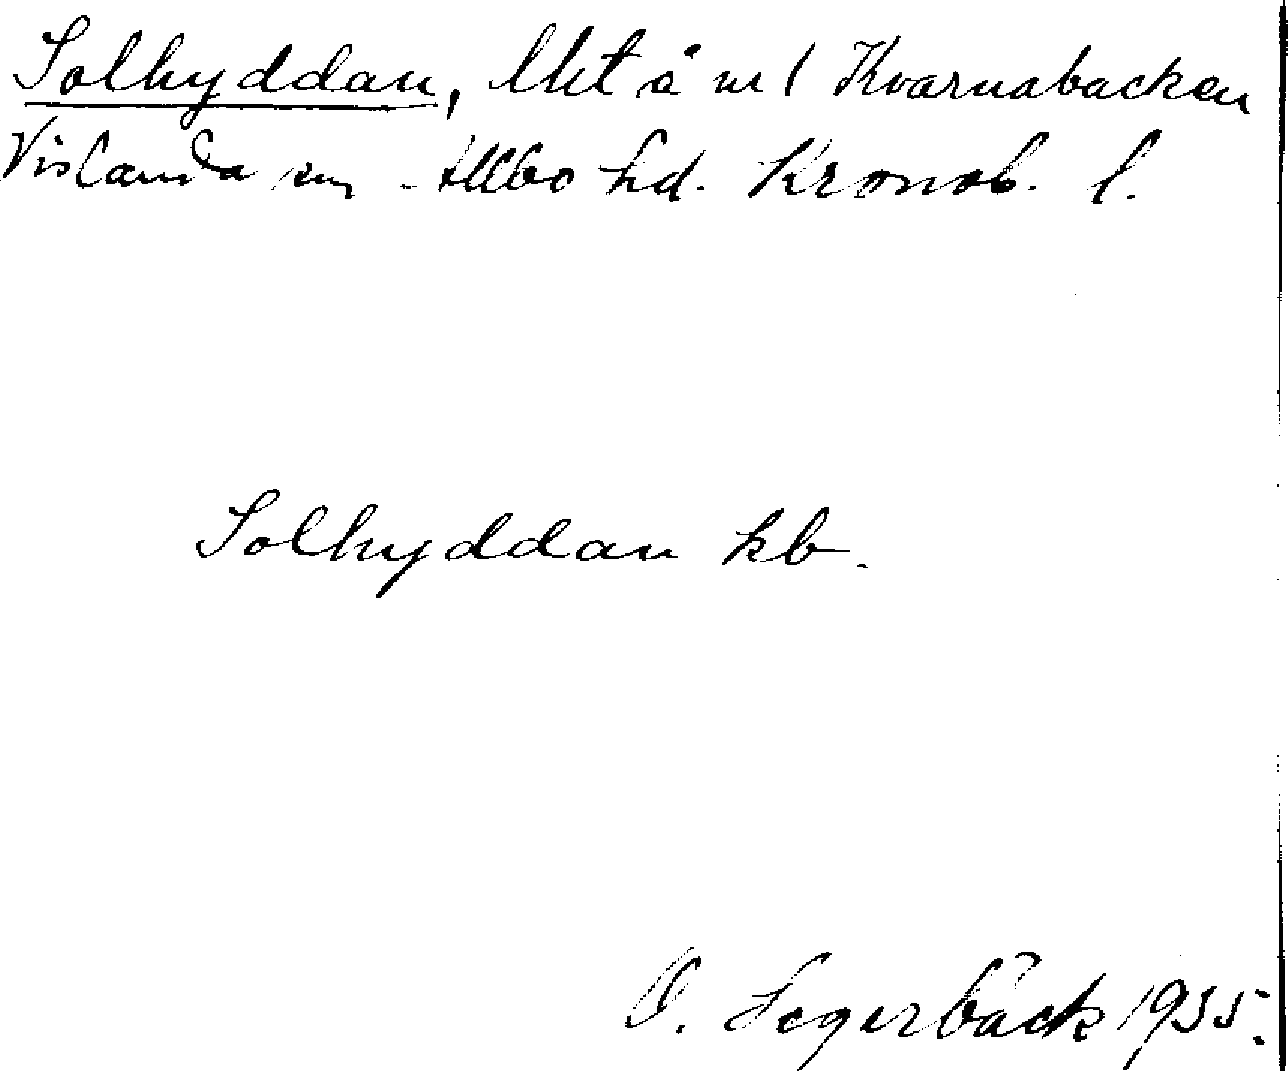 Solhyddan, lht å nr 1 Kvarnabacken
Vislanda sn Allbo hd. Kronob. l.
Solhyddan kb.
O. Segerbäck 1935.